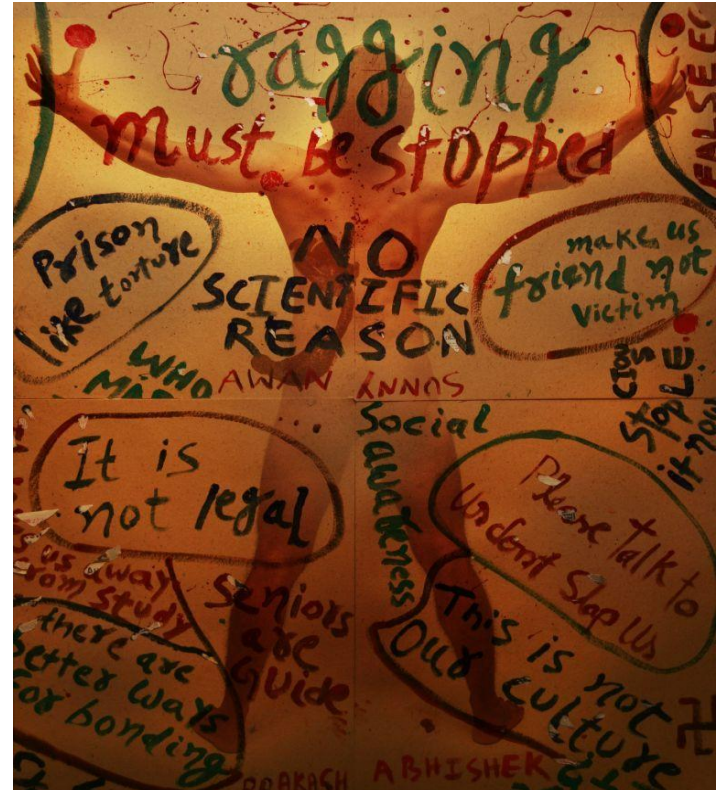 ragging
must be stopped
FALSE E
Prison
like torture
NO
SCIENTIFIC
REASON
make us
friend not
victim
WHO
AWAN SUNNY
Stop
it now
It is
not legal
Social
awareness
Please talk to
us dont Slap Us
us away
from study
Seniors
are
Guide
there are
better ways
for bonding
This is not
our culture
ABHISHEK